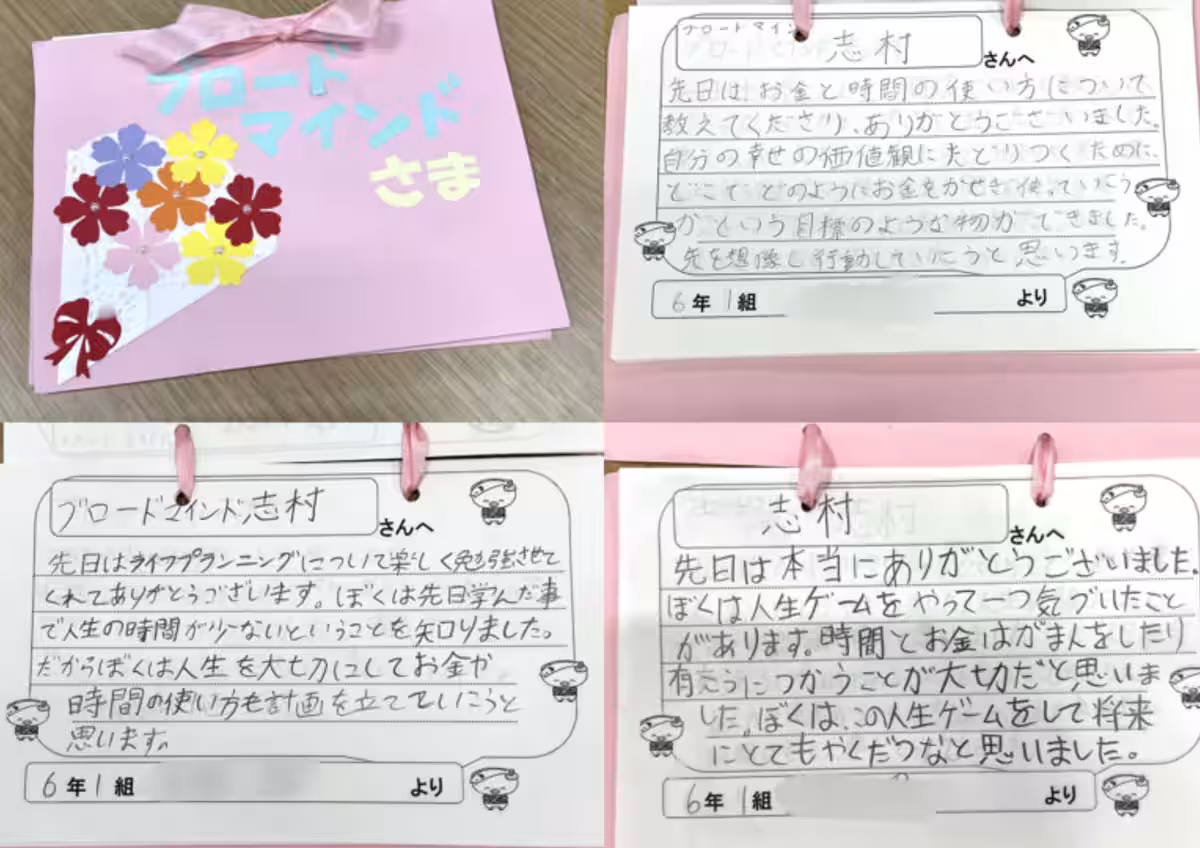 ブロード
マインド
さま
ブロードマインド
志村
さんへ
先日は、お金と時間の使い方について
教えてくださり、ありがとうございました。
自分の幸せの価値観にたどりつくために、
どこで どのようにお金をかせぎ使っていこう
かという目標のような物ができました。
先を想像し行動していこうと思います。
6年1組
より
ブロードマインド志村
さんへ
先日はライフプランニングについて楽しく勉強させて
くれてありがとうございます。ぼくは先日学んだ事
で人生の時間が少ないということを知りました。
だからぼくは人生を大切にしてお金や
時間の使い方も計画を立てていこうと
思います。
6年1組
より
志村
さんへ
先日は本当にありがとうございました。
ぼくは人生ゲームをやって一つ気づいたこと
があります。時間とお金はがまんをしたり
有こうにつかうことが大切だと思いま
した。ぼくは、この人生ゲームをして将来
にとてもやくだつなと思いました。
6年1組
より